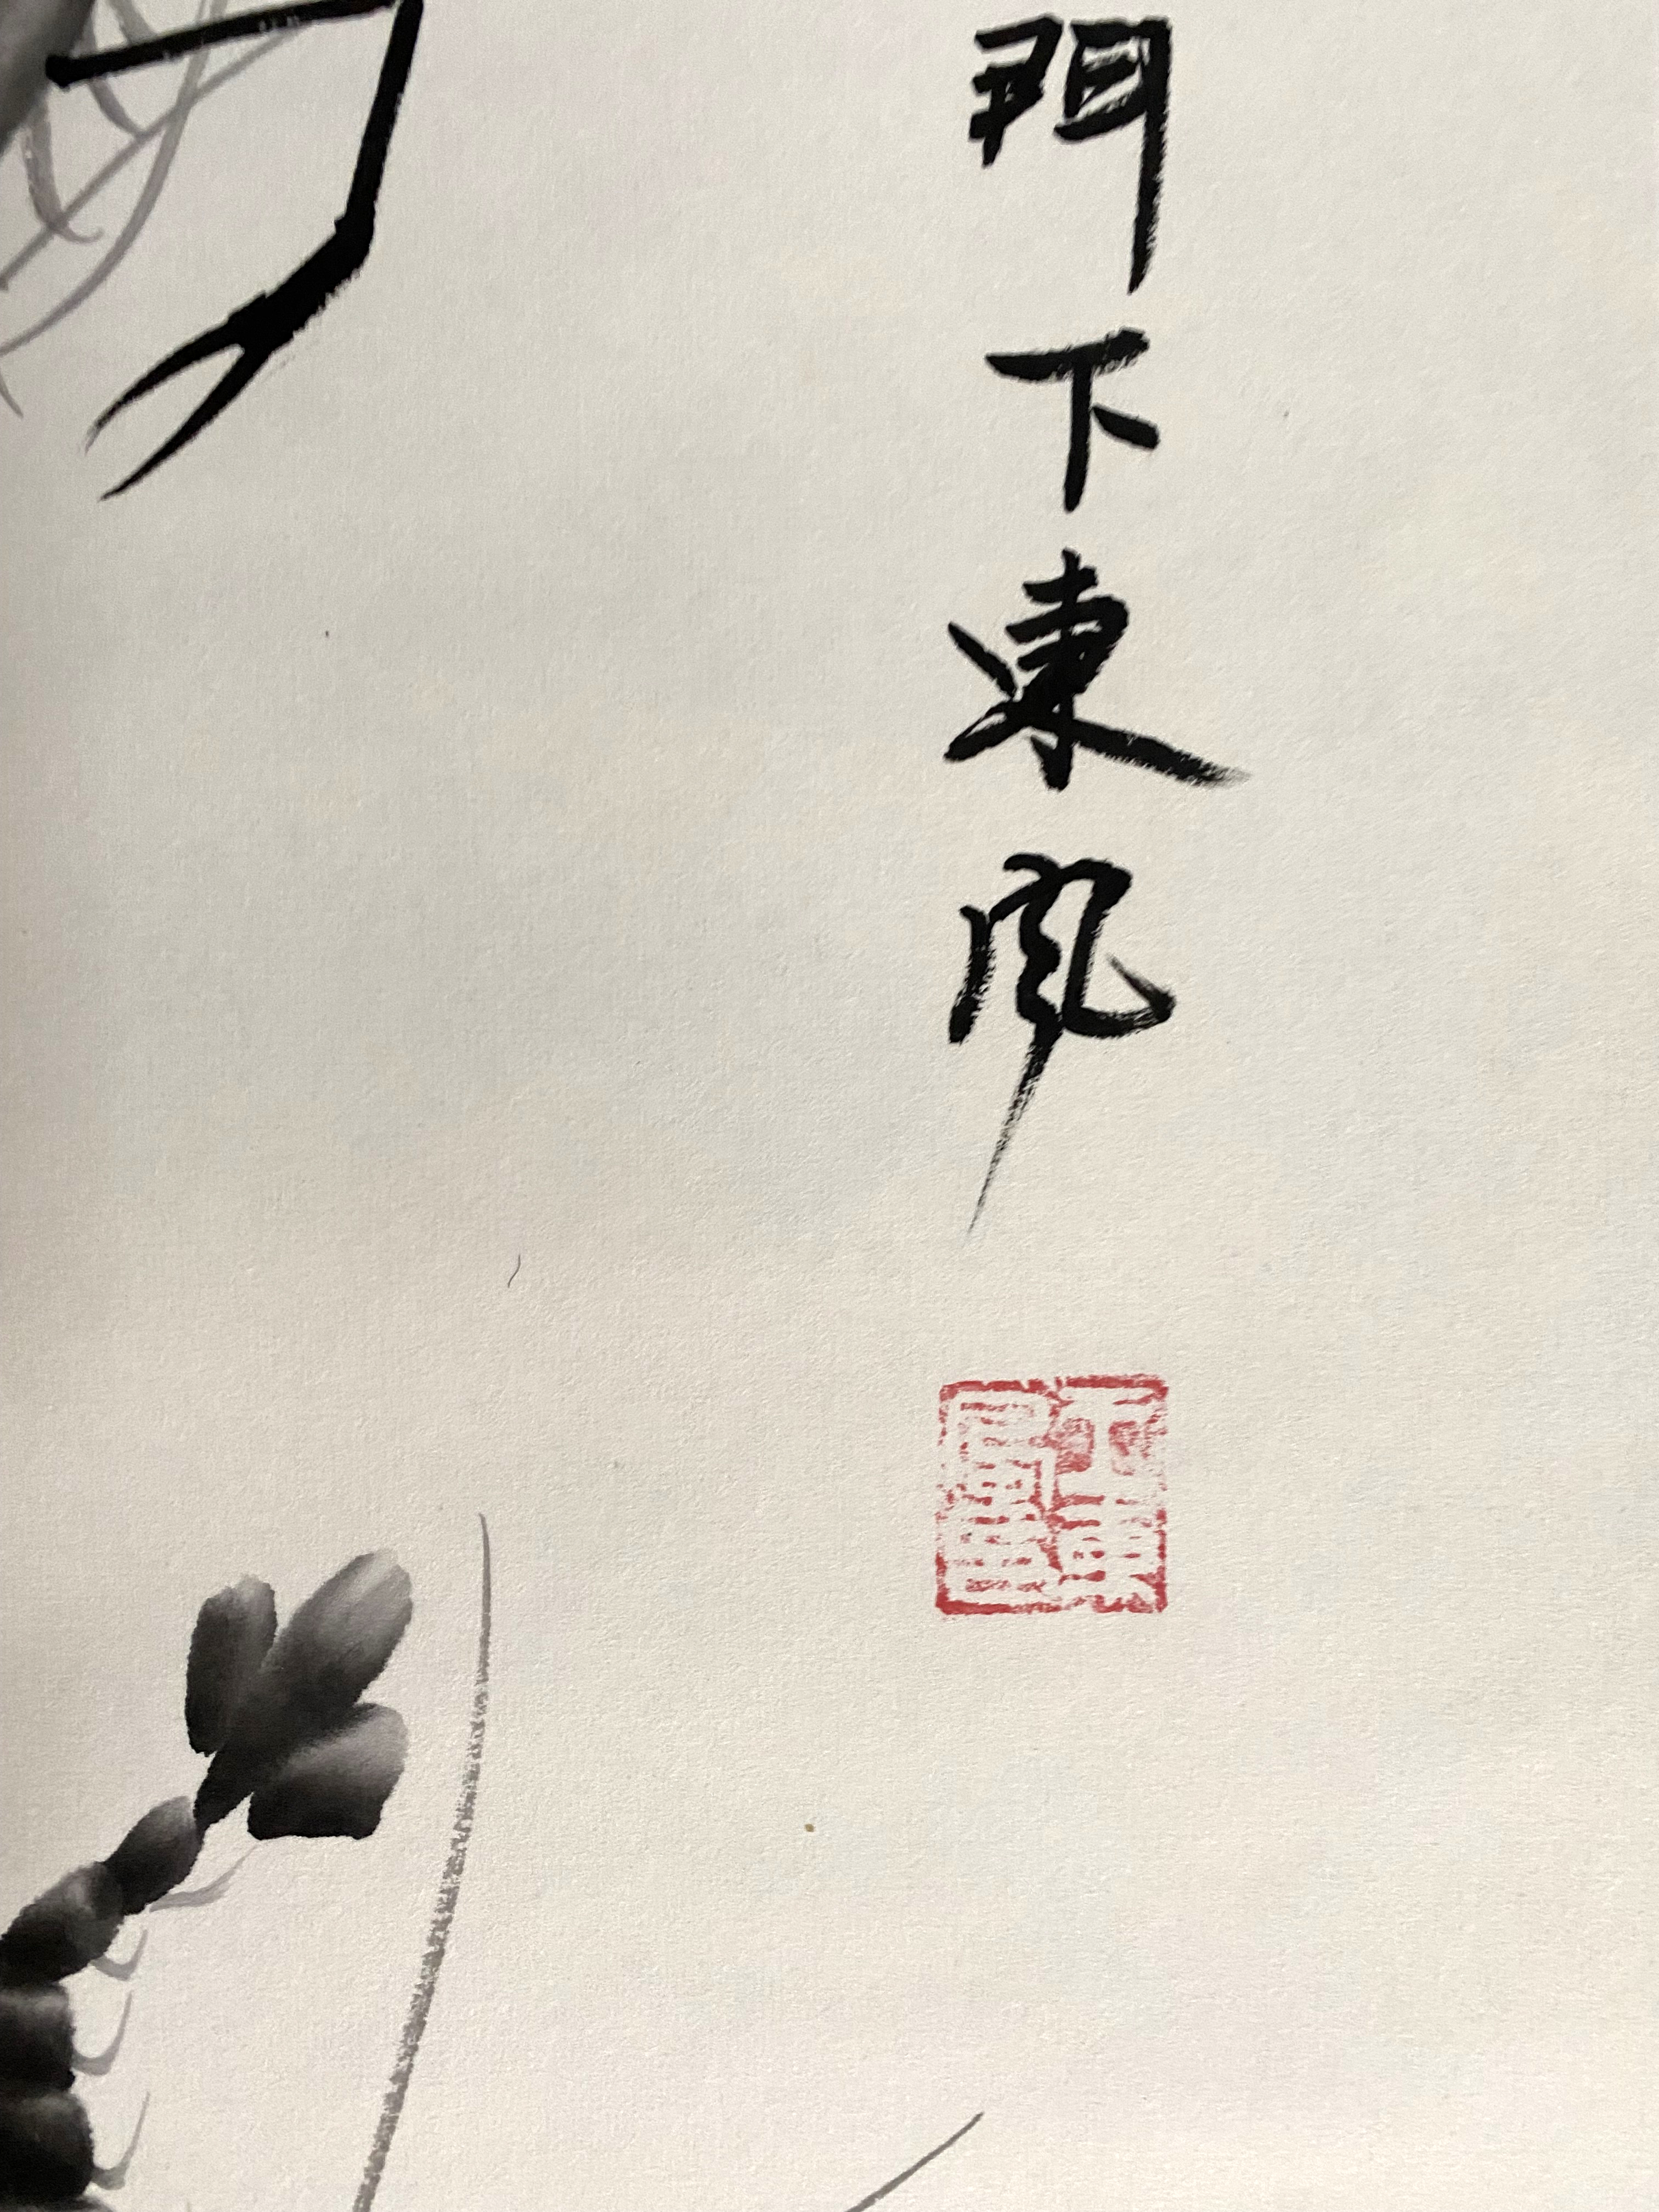 門下東風